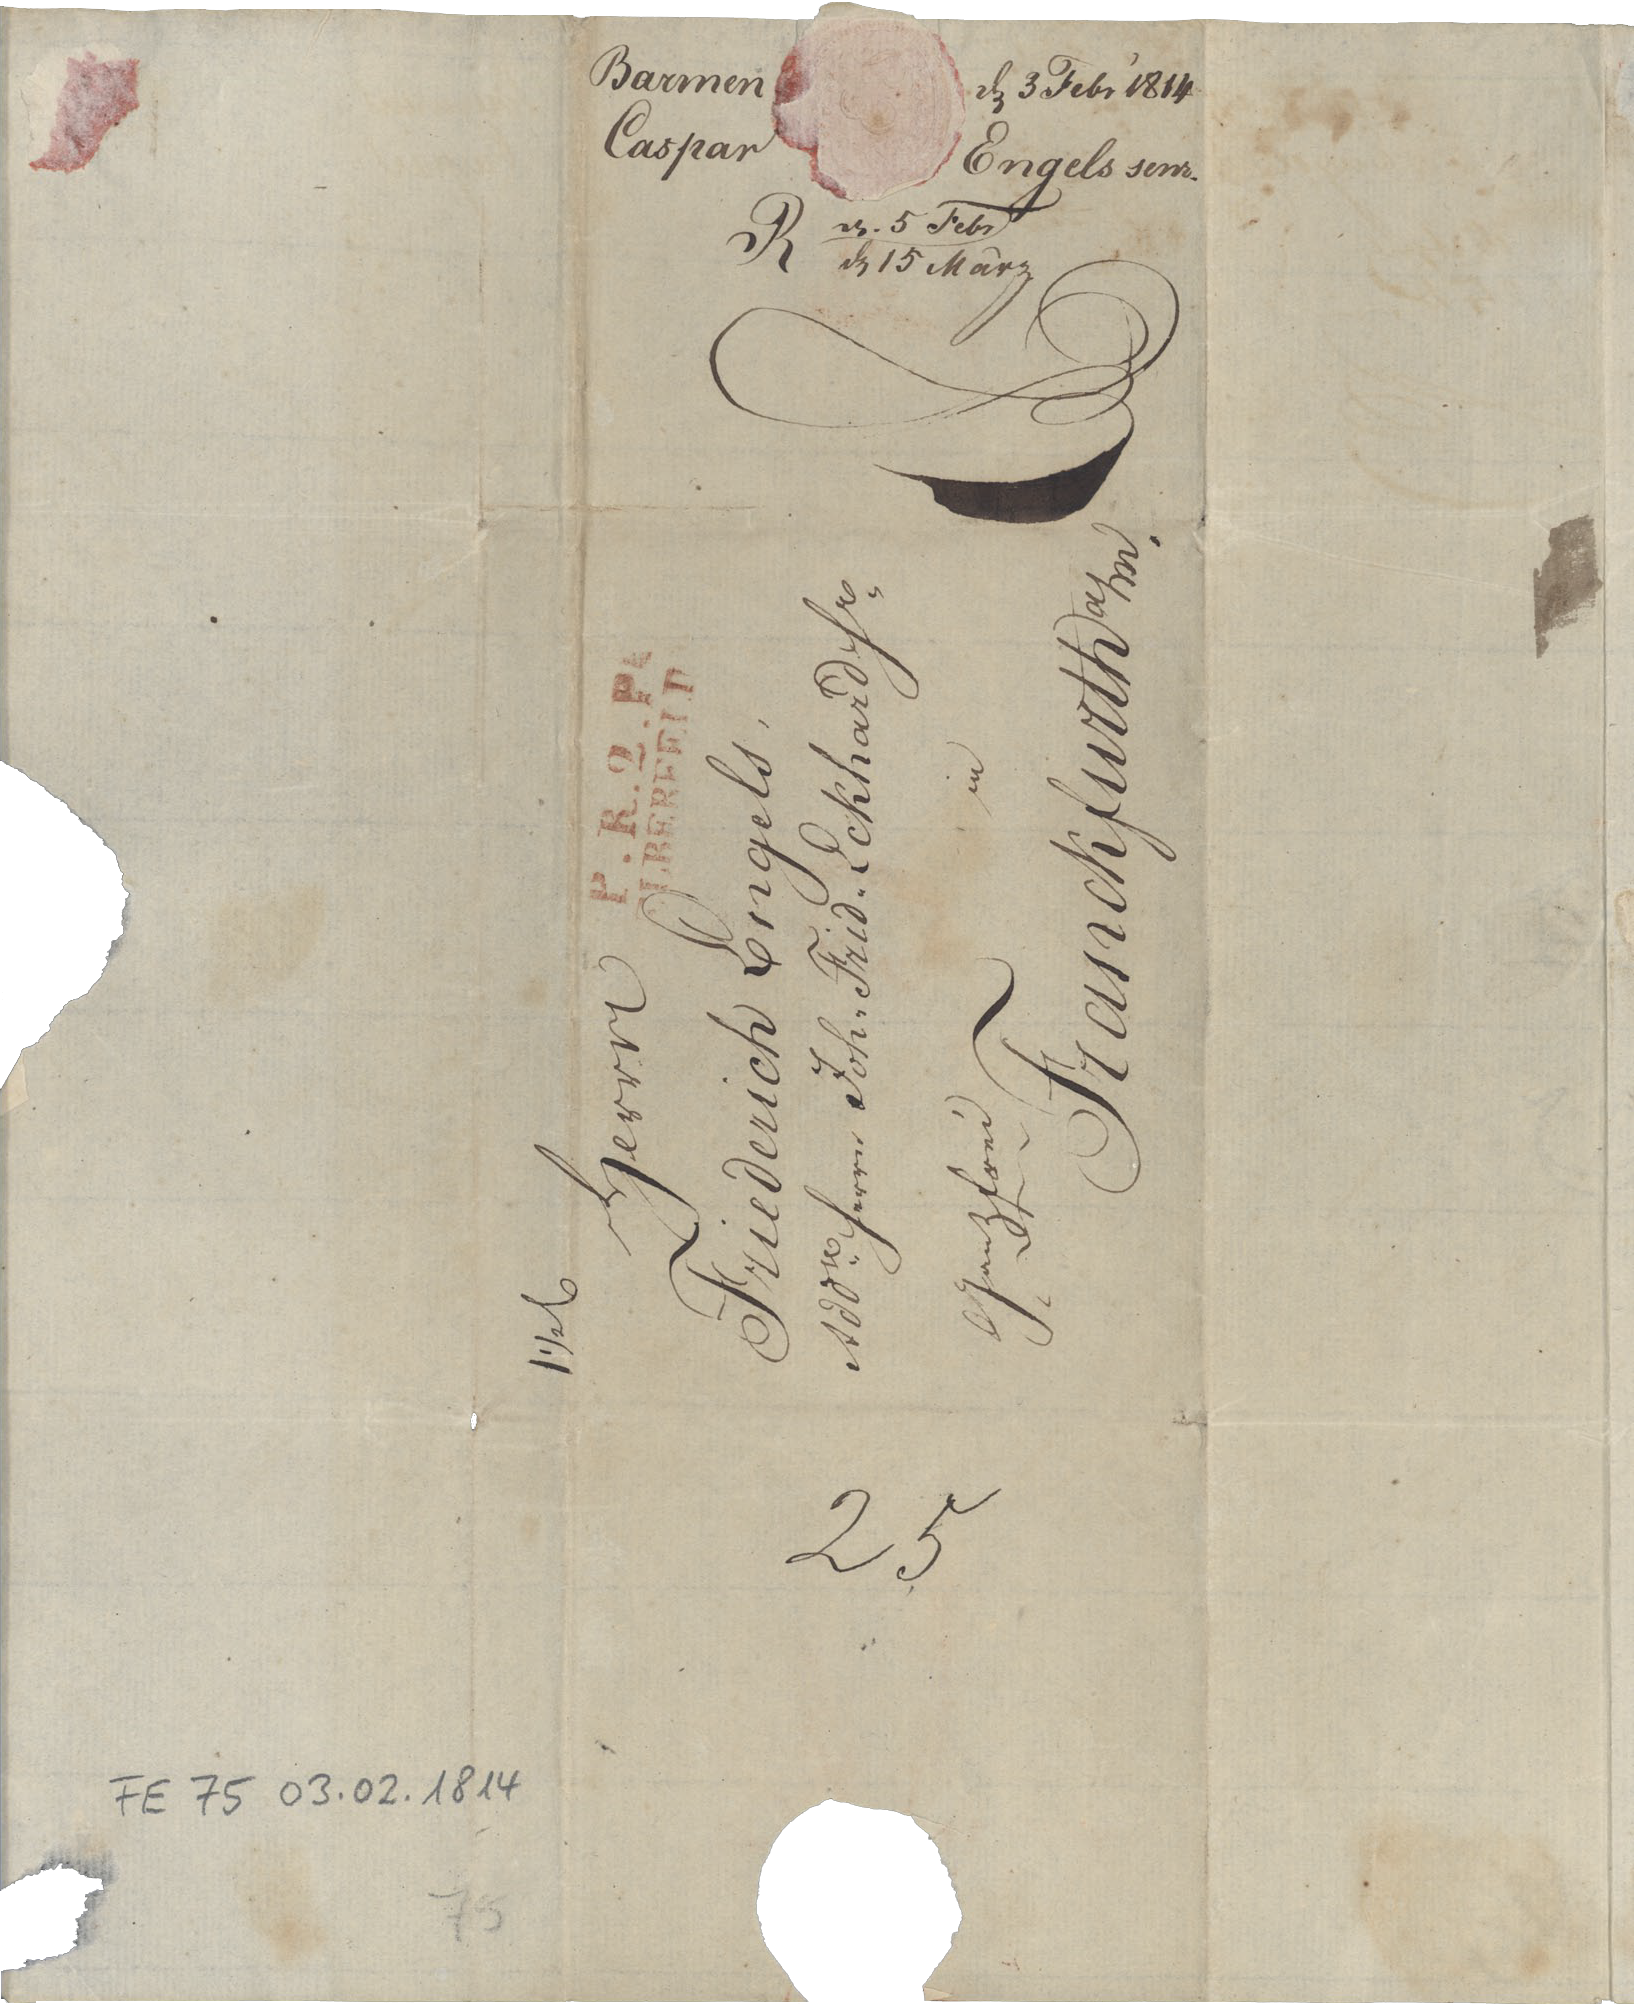 Barmen d 3 Febr 1814
Caspar Engels senr.
R d. 5 Febr
d 15 März
P. R. 2. P.
ELBERFELD
Herrn
Friederich Engels,
Addr. Herrn Joh. Frid. Eckhard Sr.
in
Ganzfrei
Franckfurth a/m.
25
FE 75 03.02.1814
75